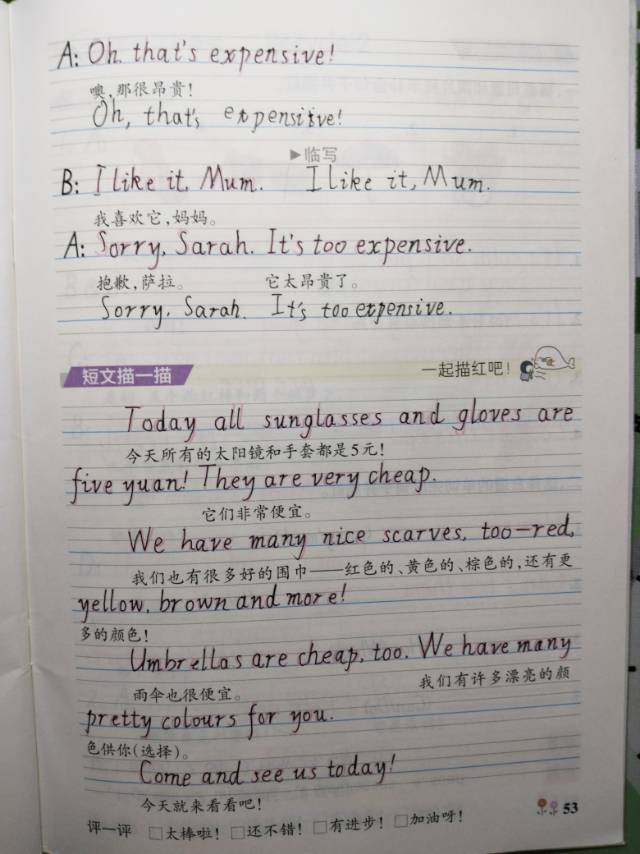 A: Oh, that's expensive!
噢,那很昂贵!
Oh, that's expensitve!
▶临写
B: I like it, Mum. I like it, Mum.
我喜欢它,妈妈。
A: Sorry, Sarah. It's too expensive.
抱歉,萨拉。 它太昂贵了。
Sorry, Sarah. It's too expensive.
短文描一描 一起描红吧!
Today all sunglasses and gloves are
今天所有的太阳镜和手套都是5元!
five yuan! They are very cheap.
它们非常便宜。
We have many nice scarves, too—red,
我们也有很多好的围巾——红色的、黄色的、棕色的,还有更
yellow, brown and more!
多的颜色!
Umbrellas are cheap, too. We have many
雨伞也很便宜。 我们有许多漂亮的颜
pretty colours for you.
色供你(选择)。
Come and see us today!
今天就来看看吧!
评一评 □太棒啦! □还不错! □有进步! □加油呀!
53